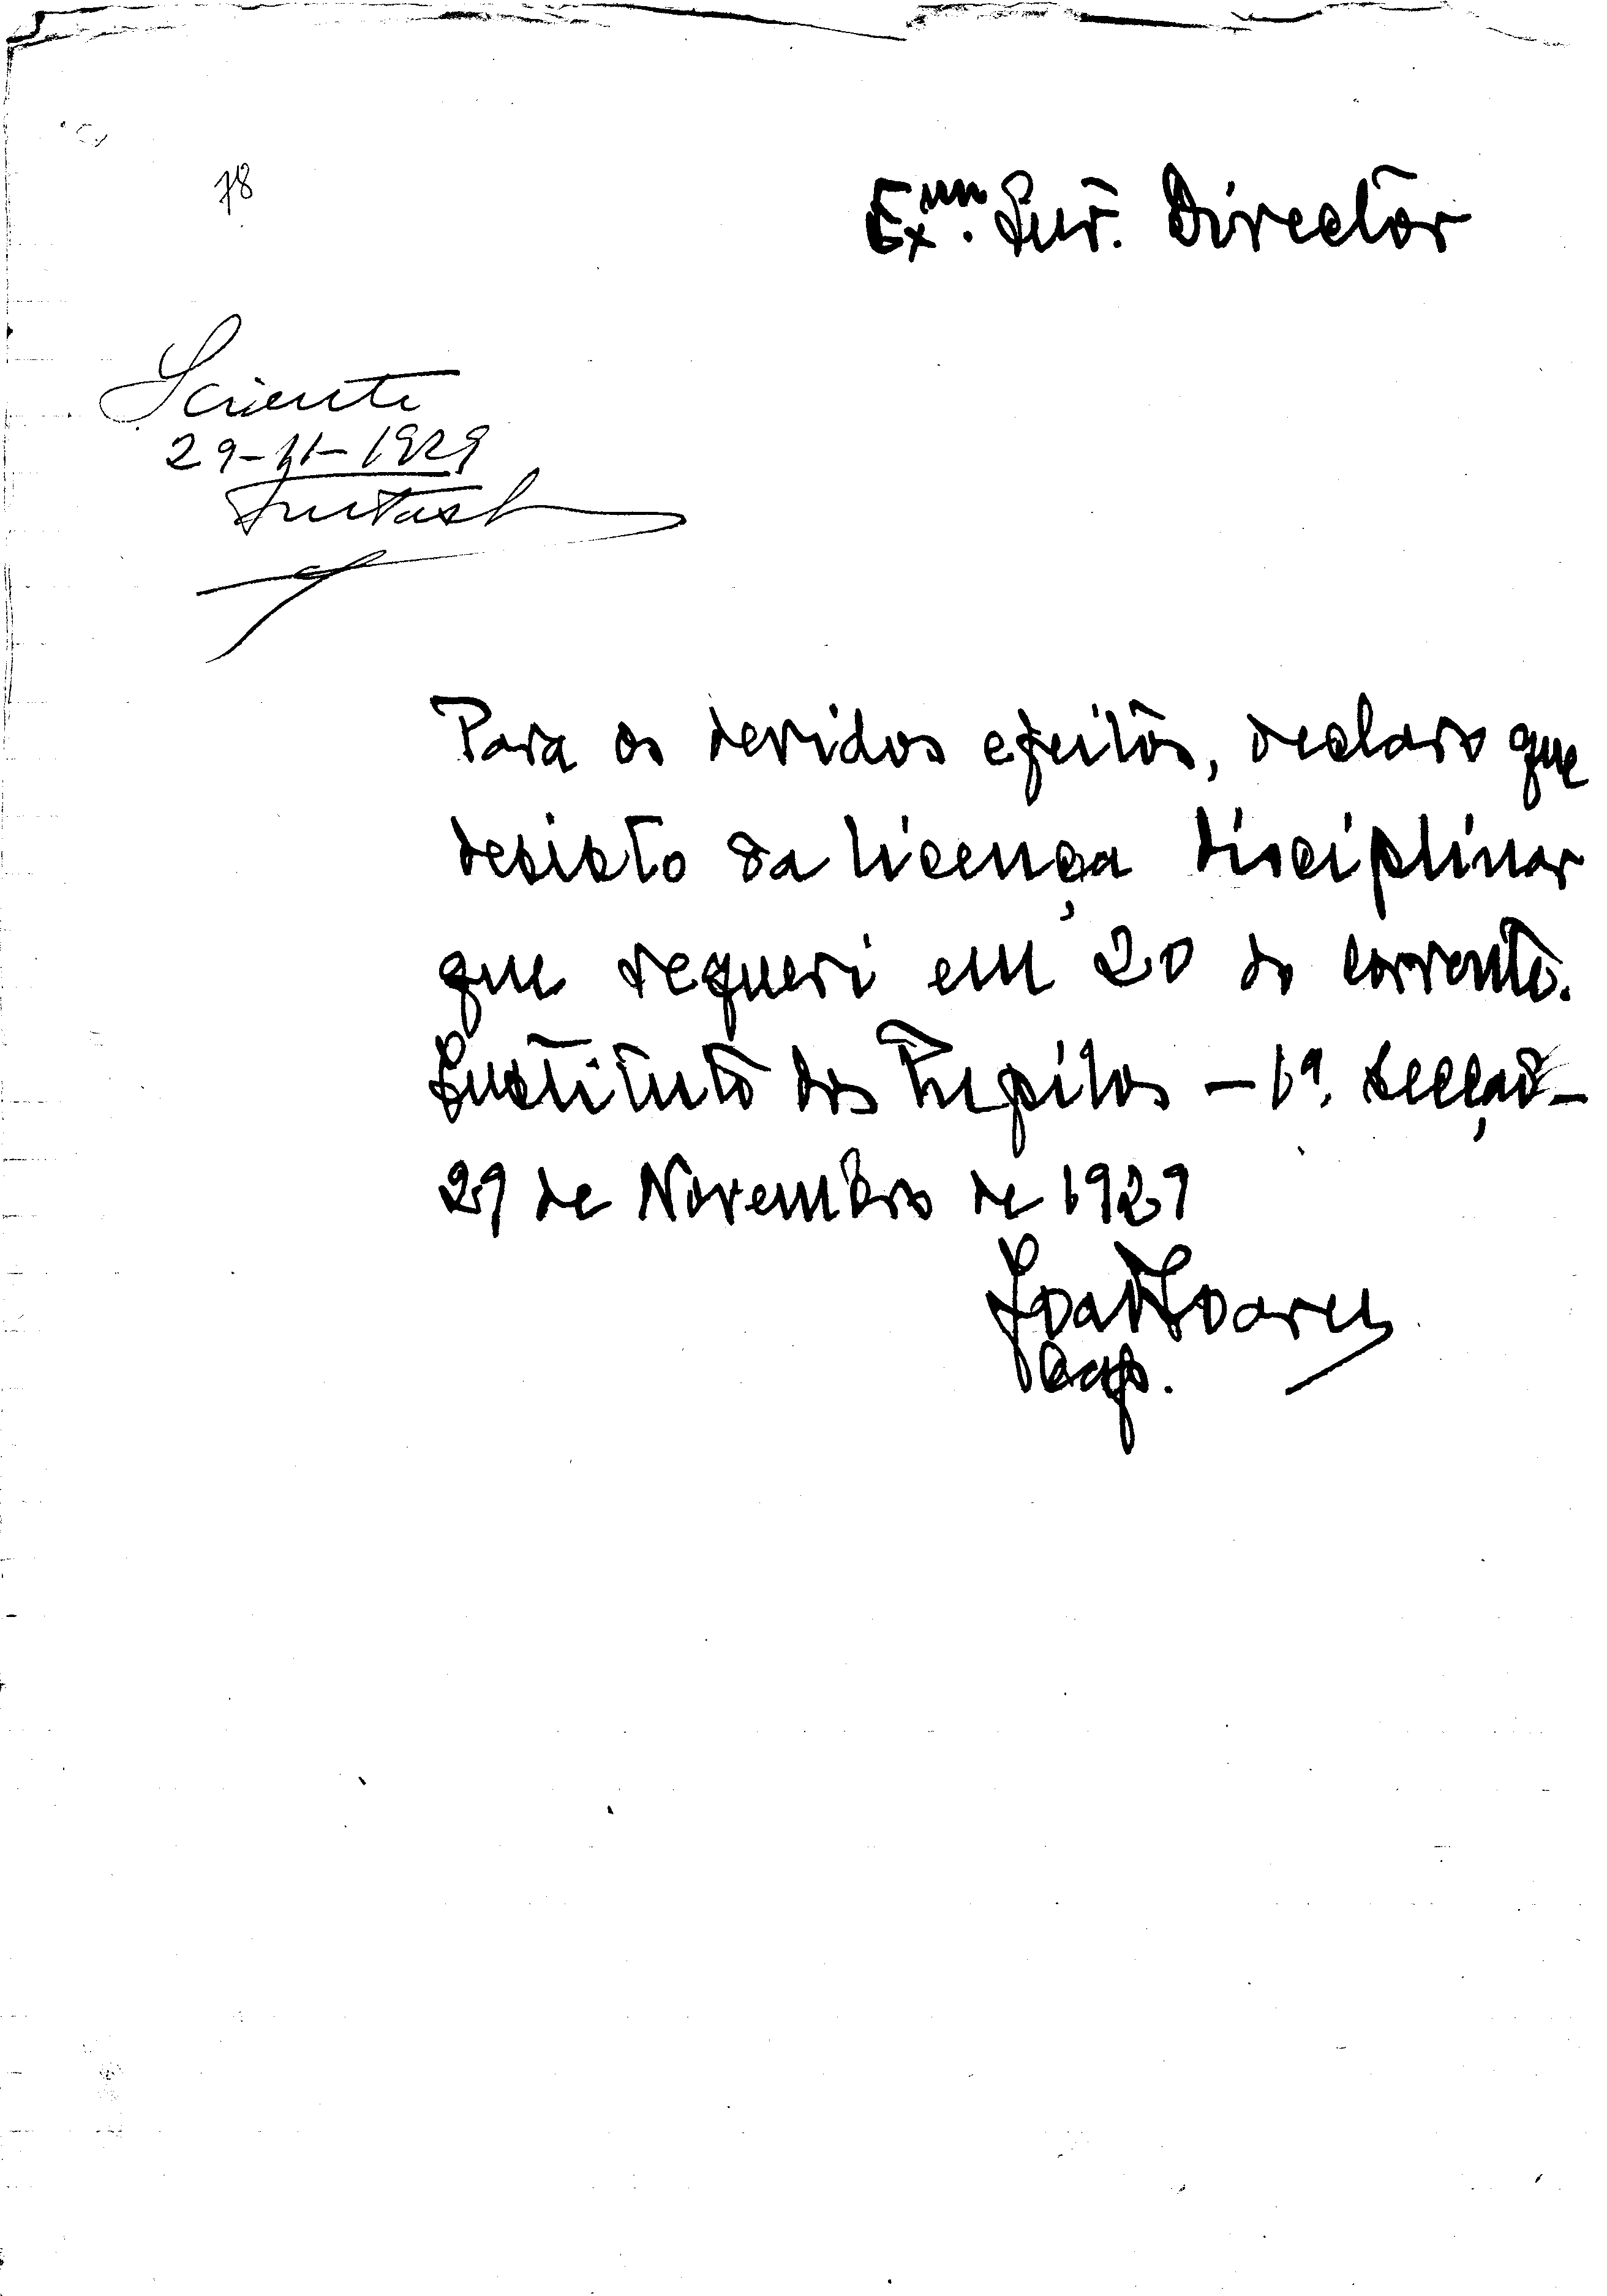 78
Ex.mo Snr. Director
Sciente
29-11-1929
Para os devidos efeitos, declaro que
desisto da licença disciplinar
que requeri em 20 do corrente.
Instituto dos Pupilos - 1ª. Secção -
29 de Novembro de 1929
João Soares
Cap.